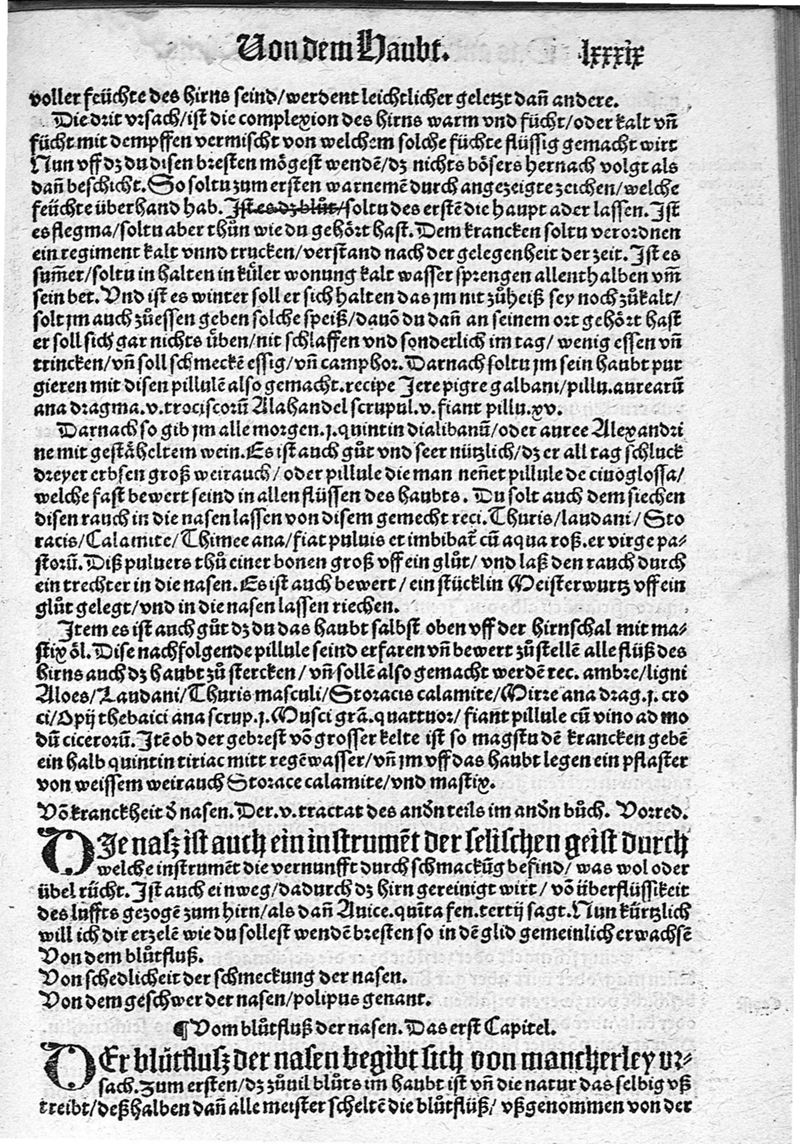 Von dem Haubt. lxxxix
voller feüchte des hirns seind/werdent leichtlicher geletzt dañ andere.
Die drit vrsach/ist die complexion des hirns warm vnd fücht/oder kalt vñ
fücht mit dempffen vermischt von welchem solche füchte flüssig gemacht wirt
Nun vff dz du disen bresten mögest wendē/dz nichts bösers hernach volgt als
dañ beschicht. So soltu zum ersten warnemē durch angezeigte zeichen/welche
feüchte überhand hab. Ist es dz blůt/soltu des erstē die haupt ader lassen. Ist
es flegma/soltu aber thůn wie du gehört hast. Dem krancken soltu verordnen
ein regiment kalt vnnd trucken/verstand nach der gelegenheit der zeit. Ist es
sum̄er/soltu in halten in küler wonung kalt wasser sprengen allenthalben vm̄
sein bet. Vnd ist es winter soll er sich halten das jm nit zůheiß sey noch zůkalt/
solt jm auch zůessen geben solche speiß/dauō du dañ an seinem ort gehört hast
er soll sich gar nichts üben/nit schlaffen vnd sonderlich im tag/ wenig essen vñ
trincken/vñ soll schmeckē essig/vñ camphor. Darnach soltu jm sein haubt pur
gieren mit disen pillulē also gemacht.recipe Jere pigre galbani/pillu.aurearū
ana dragma.v.trociscorū Alahandel scrupul.v.fiant pillu.xv.
Darnach so gib jm alle morgen.j.quintin dialibanū/oder auree Alexandri
ne mit gestäheltem wein. Es ist auch gůt vnd seer nützlich/dz er all tag schluck
dreyer erbsen groß weirauch/oder pillule die man neñet pillule de cinoglossa/
welche fast bewert seind in allen flüssen des haubts. Du solt auch dem siechen
disen rauch in die nasen lassen von disem gemecht reci.Thuris/laudani/Sto
racis/Calamite/Thimee ana/fiat puluis et imbibat̄ cū aqua roß.er virge pa-
storū. Diß puluers thů einer bonen groß vff ein glůt/ vnd laß den rauch durch
ein trechter in die nasen. Es ist auch bewert/ ein stücklin Meisterwurtz vff ein
glůt gelegt/vnd in die nasen lassen riechen.
Item es ist auch gůt dz du das haubt salbst oben vff der hirnschal mit ma-
stix öl. Dise nachfolgende pillule seind erfaren vñ bewert zůstellē alle flüß des
hirns auch dz haubt zů stercken/ vñ sollē also gemacht werdē rec. ambre/ligni
Aloes/Laudani/Thuris masculi/Storacis calamite/Mirre ana drag.j. cro
ci/Opij thebaici ana scrup.j.Musci grā.quattuor/ fiant pillule cū vino ad mo
dū cicerorū. Itē ob der gebrest vō grosser kelte ist so magstu dē krancken gebē
ein halb quintin tiriac mitt regēwasser/vñ jm vff das haubt legen ein pflaster
von weissem weirauch Storace calamite/vnd mastix.
Vō kranckheit ð nasen. Der.v.tractat des anðn teils im anðn bůch. Vorred.
DJe nasz ist auch ein instrumēt der selischen geist durch
welche instrumēt die vernunfft durch schmackūg befind/ was wol oder
übel rücht. Ist auch ein weg/dadurch dz hirn gereinigt wirt/ vō überflüssikeit
des luffts gezogē zum hirn/als dañ Auice.quīta fen.tertij sagt. Nun kürtzlich
will ich dir erzelē wie du sollest wendē bresten so in dē glid gemeinlich erwachsē
Von dem blůtfluß.
Von schedlicheit der schmeckung der nasen.
Von dem geschwer der nasen/polipus genant.
¶Vom blůtfluß der nasen. Das erst Capitel.
DEr blůtflusz der nasen begibt sich von mancherley vr-
sach. Zum ersten/dz zůuil blůts im haubt ist vñ die natur das selbig vß
treibt/deßhalben dañ alle meister scheltē die blůtflüß/ vßgenommen von der